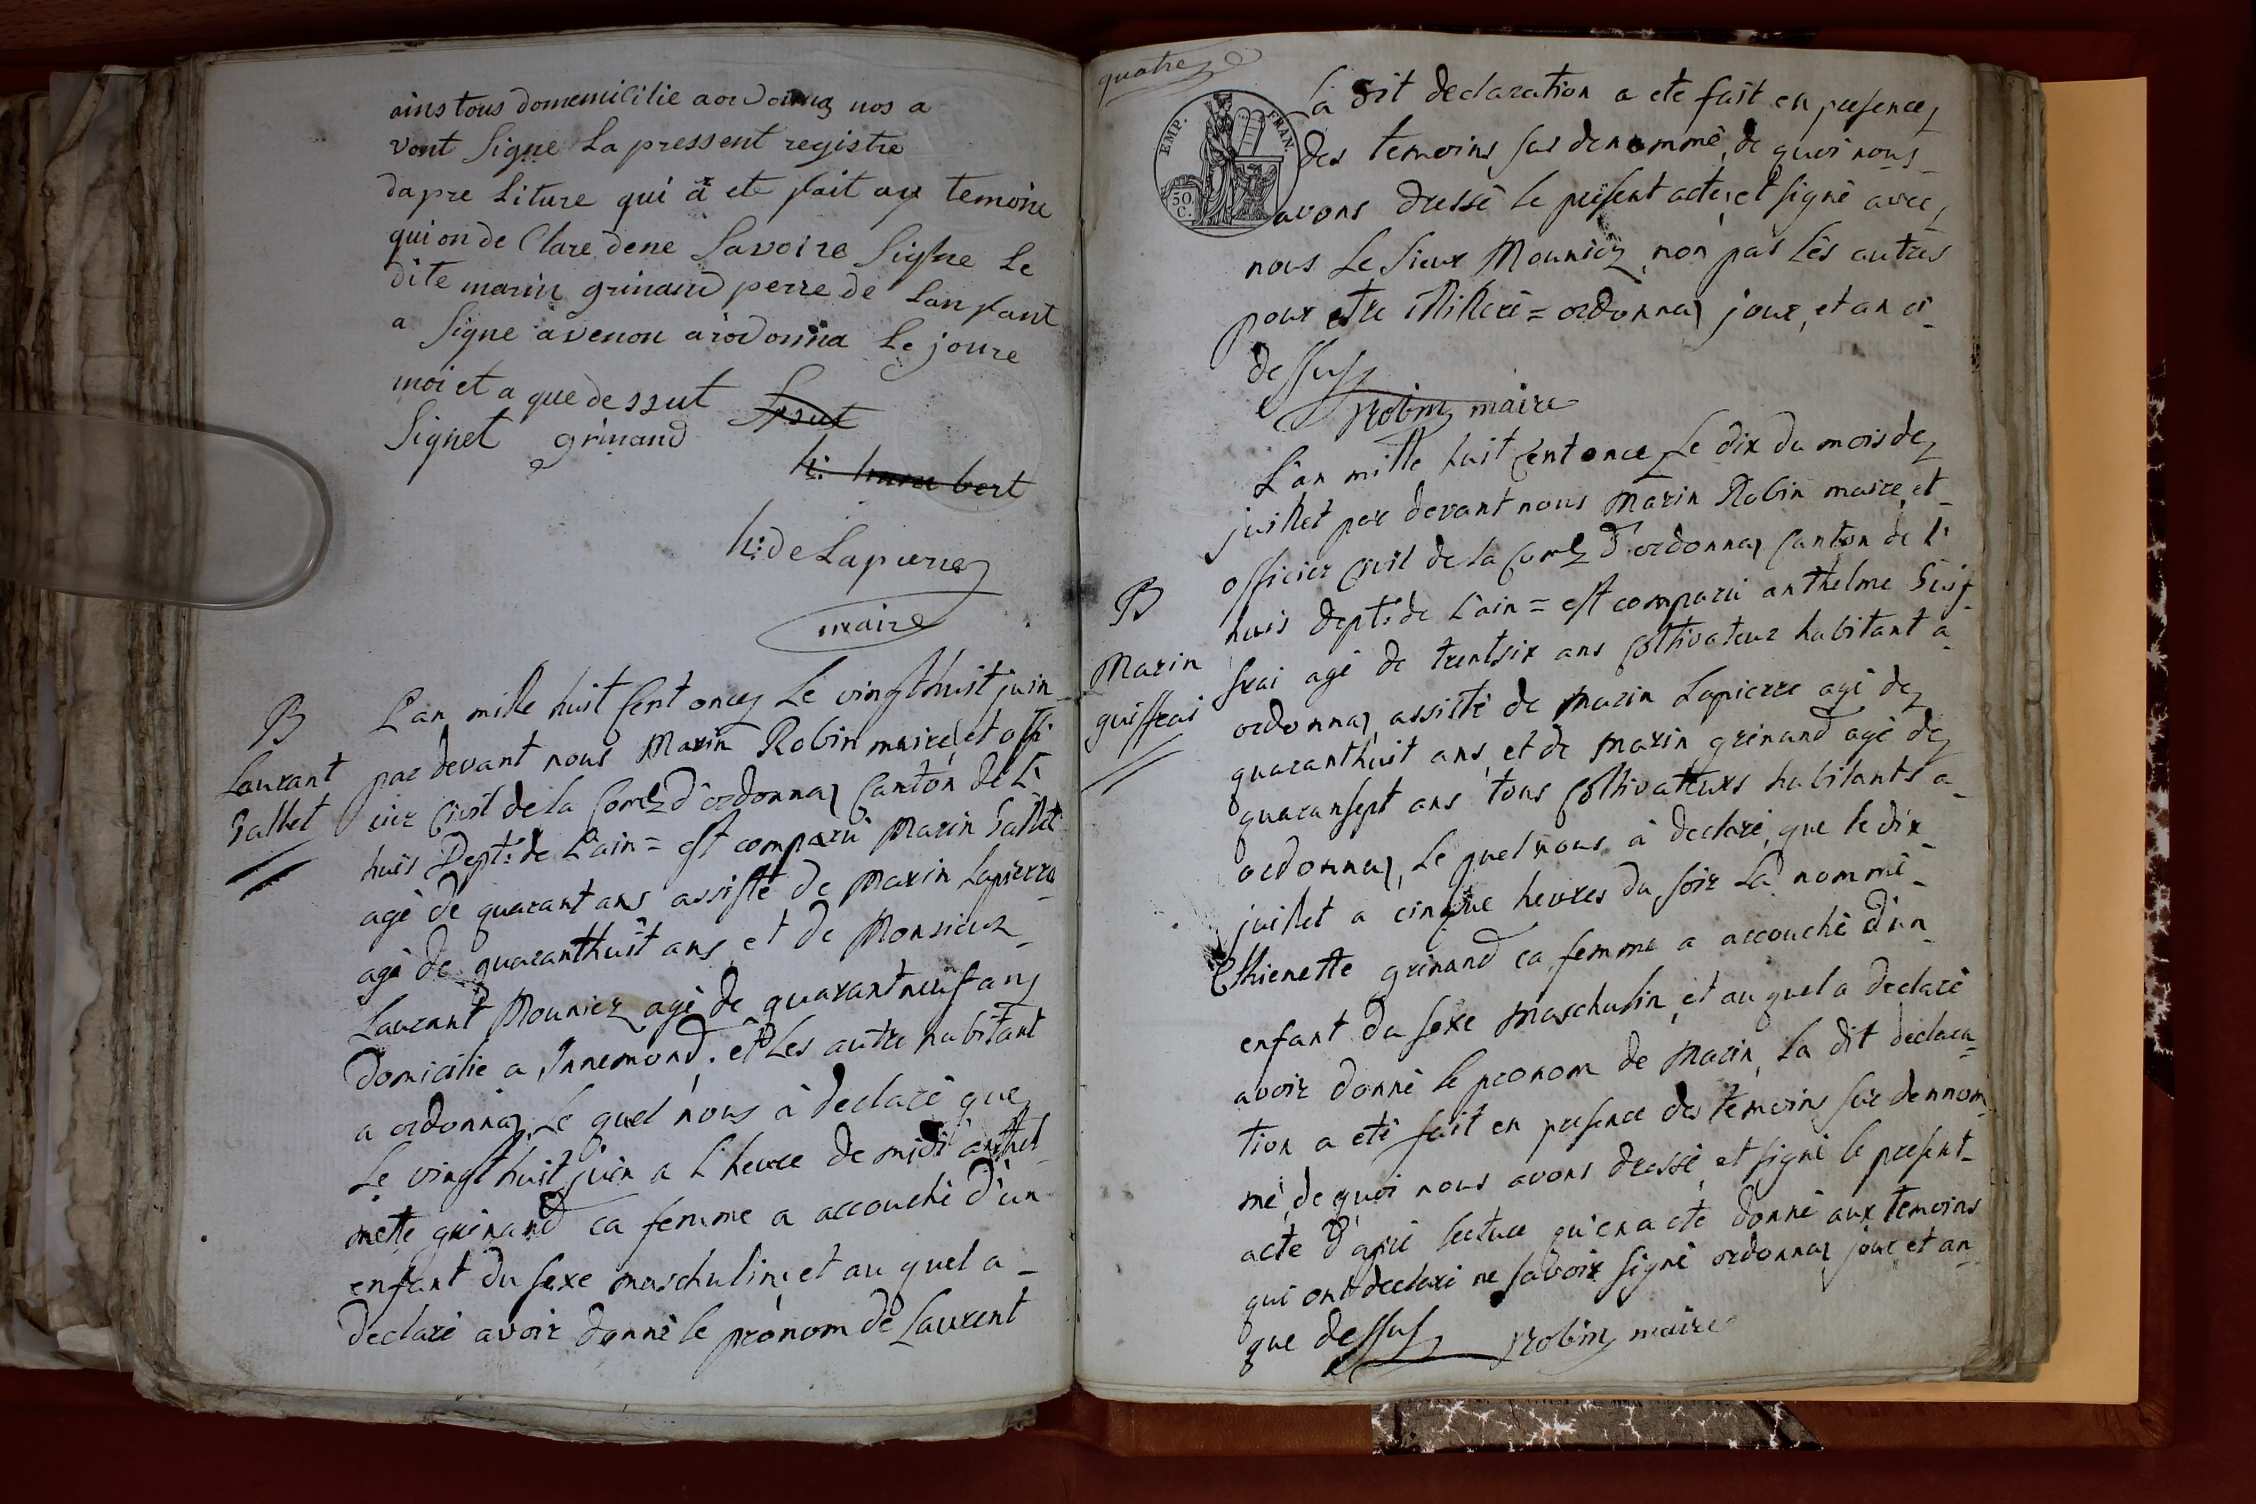 ains tous domemicilie a ordonnaz nos a
vont Signe La pressent registre
dapre Liture qui a ete fait ay temoin
qui on de Clare dene Savoire Signe Le
dite marin grinand perre de Lanfant
a Signe avenou a ordonna Le joure
moi et a que dessut
Signet grinand
h: humbert
h: de Lapierre
maire
B
Laurant
Gallet
L'an mille huit Cent oncez Le vingthuit juin
par devant nous Marin Robin maire, et offi
cier Civil de la Come d'ordonnaz Canton de L'
huis Dept: de L'ain = est comparu Marin Gallet
agé de quarant ans assisté de Marin Lapierre
agé de quaranthuit ans, et de Monsieur
Laurant Mounier agé de quarantneuf ans
Domicilié a Innemond. et Les autre habitant
a ordonnaz, Le quel nous à declaré que
Le vingthuit juin a L'heure de midi anthel
mette grinand ca femme a accouché d'un
enfant du sexe maschulin, et au quel a
declaré avoir donné le pronom de Laurent
quatre
EMP. FRAN.
50. C.
La dit declaration a ete fait en presence
des temoins sus denommé, de quoi nous
avons dressé le present acte, et signé avec
nous Le Sieur Mounier, non pas Lés autres
pour etre illilleré = ordonnaz jour, et an ci
dessus
Robin maire
B
Marin
guiffrai
L'an mille huit Cent once Le dix du mois de
juillet par devant nous Marin Robin maire, et
officier Civil de la Come d'ordonnaz Canton de L'
huis dept: de L'ain = est comparu anthelme Guif
frai agé de trentsix ans Coltivateur habitant a
ordonnaz, assisté de Marin Lapierre agé de
quaranthuit ans, et de Marin grinand agé de
quaransept ans tous Coltivateurs habitants a
ordonnaz, Le quel nous à declaré, que le dix
juillet a cinque heures du soir La nommé
Ethienette grinand ca femme a accouché d'un
enfant du sexe Maschulin, et au quel a declaré
avoir donné le pronom de Marin, La dit declara
tion a eté fait en presence des temoins sus dennom
mé, de quoi nous avons dressé, et signé le present
acte d'apré lecture qu'en a ete donné aux temoins
qui ont declaré ne savoir signé ordonnaz jour et an
que dessus Robin maire